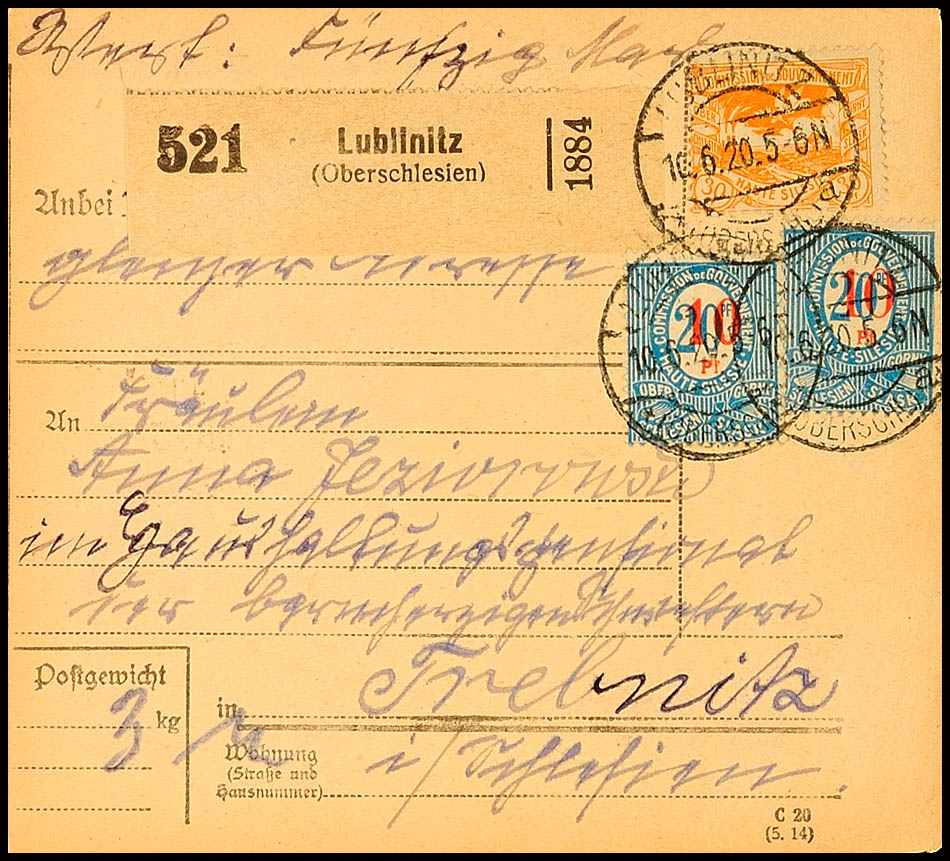 Wert: Fünfzig Mark
521 Lublinitz
(Oberschlesien)
1884
Anbei
gleicher Adresse
COMMISSION DE GOUVERNEMENT
HAUTE SILESIE
30 30
LUBLINITZ
10.6.20.5-6N
a
(OBERSCHL.)
COMMISSION DE GOUVERNEMENT
HAUTE-SILESIE
20 10
Pf
10.6.20.5-6N
COMMISSION DE GOUVERNEMENT
HAUTE-SILESIE
20 10
Pf
a
(OBERSCHL.)
An Fräulein
Anna
im Haushaltungspensionat
der barmherzigen Schwestern
Postgewicht
3 kg
in Trebnitz
Wohnung
(Straße und
Hausnummer)
i/Schlesien.
C 20
(5. 14)